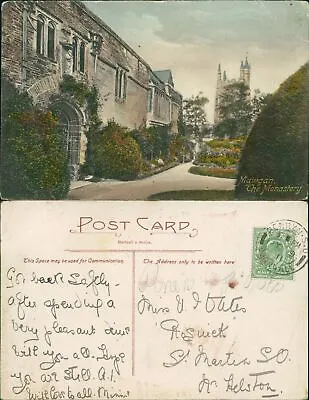 Mawgan,
The Monastery
POST CARD
This Space may be used for Communication.
The Address only to be written here
Got back Safely
after spending a
very pleasant time
with you all. Hope
you are still A.1.
With love to all. Minnie
Miss V I
St Martin S.O.
Nr Helston